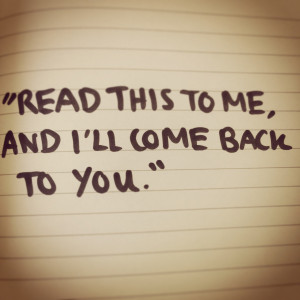 "READ THIS TO ME,
AND I'LL COME BACK
TO YOU."